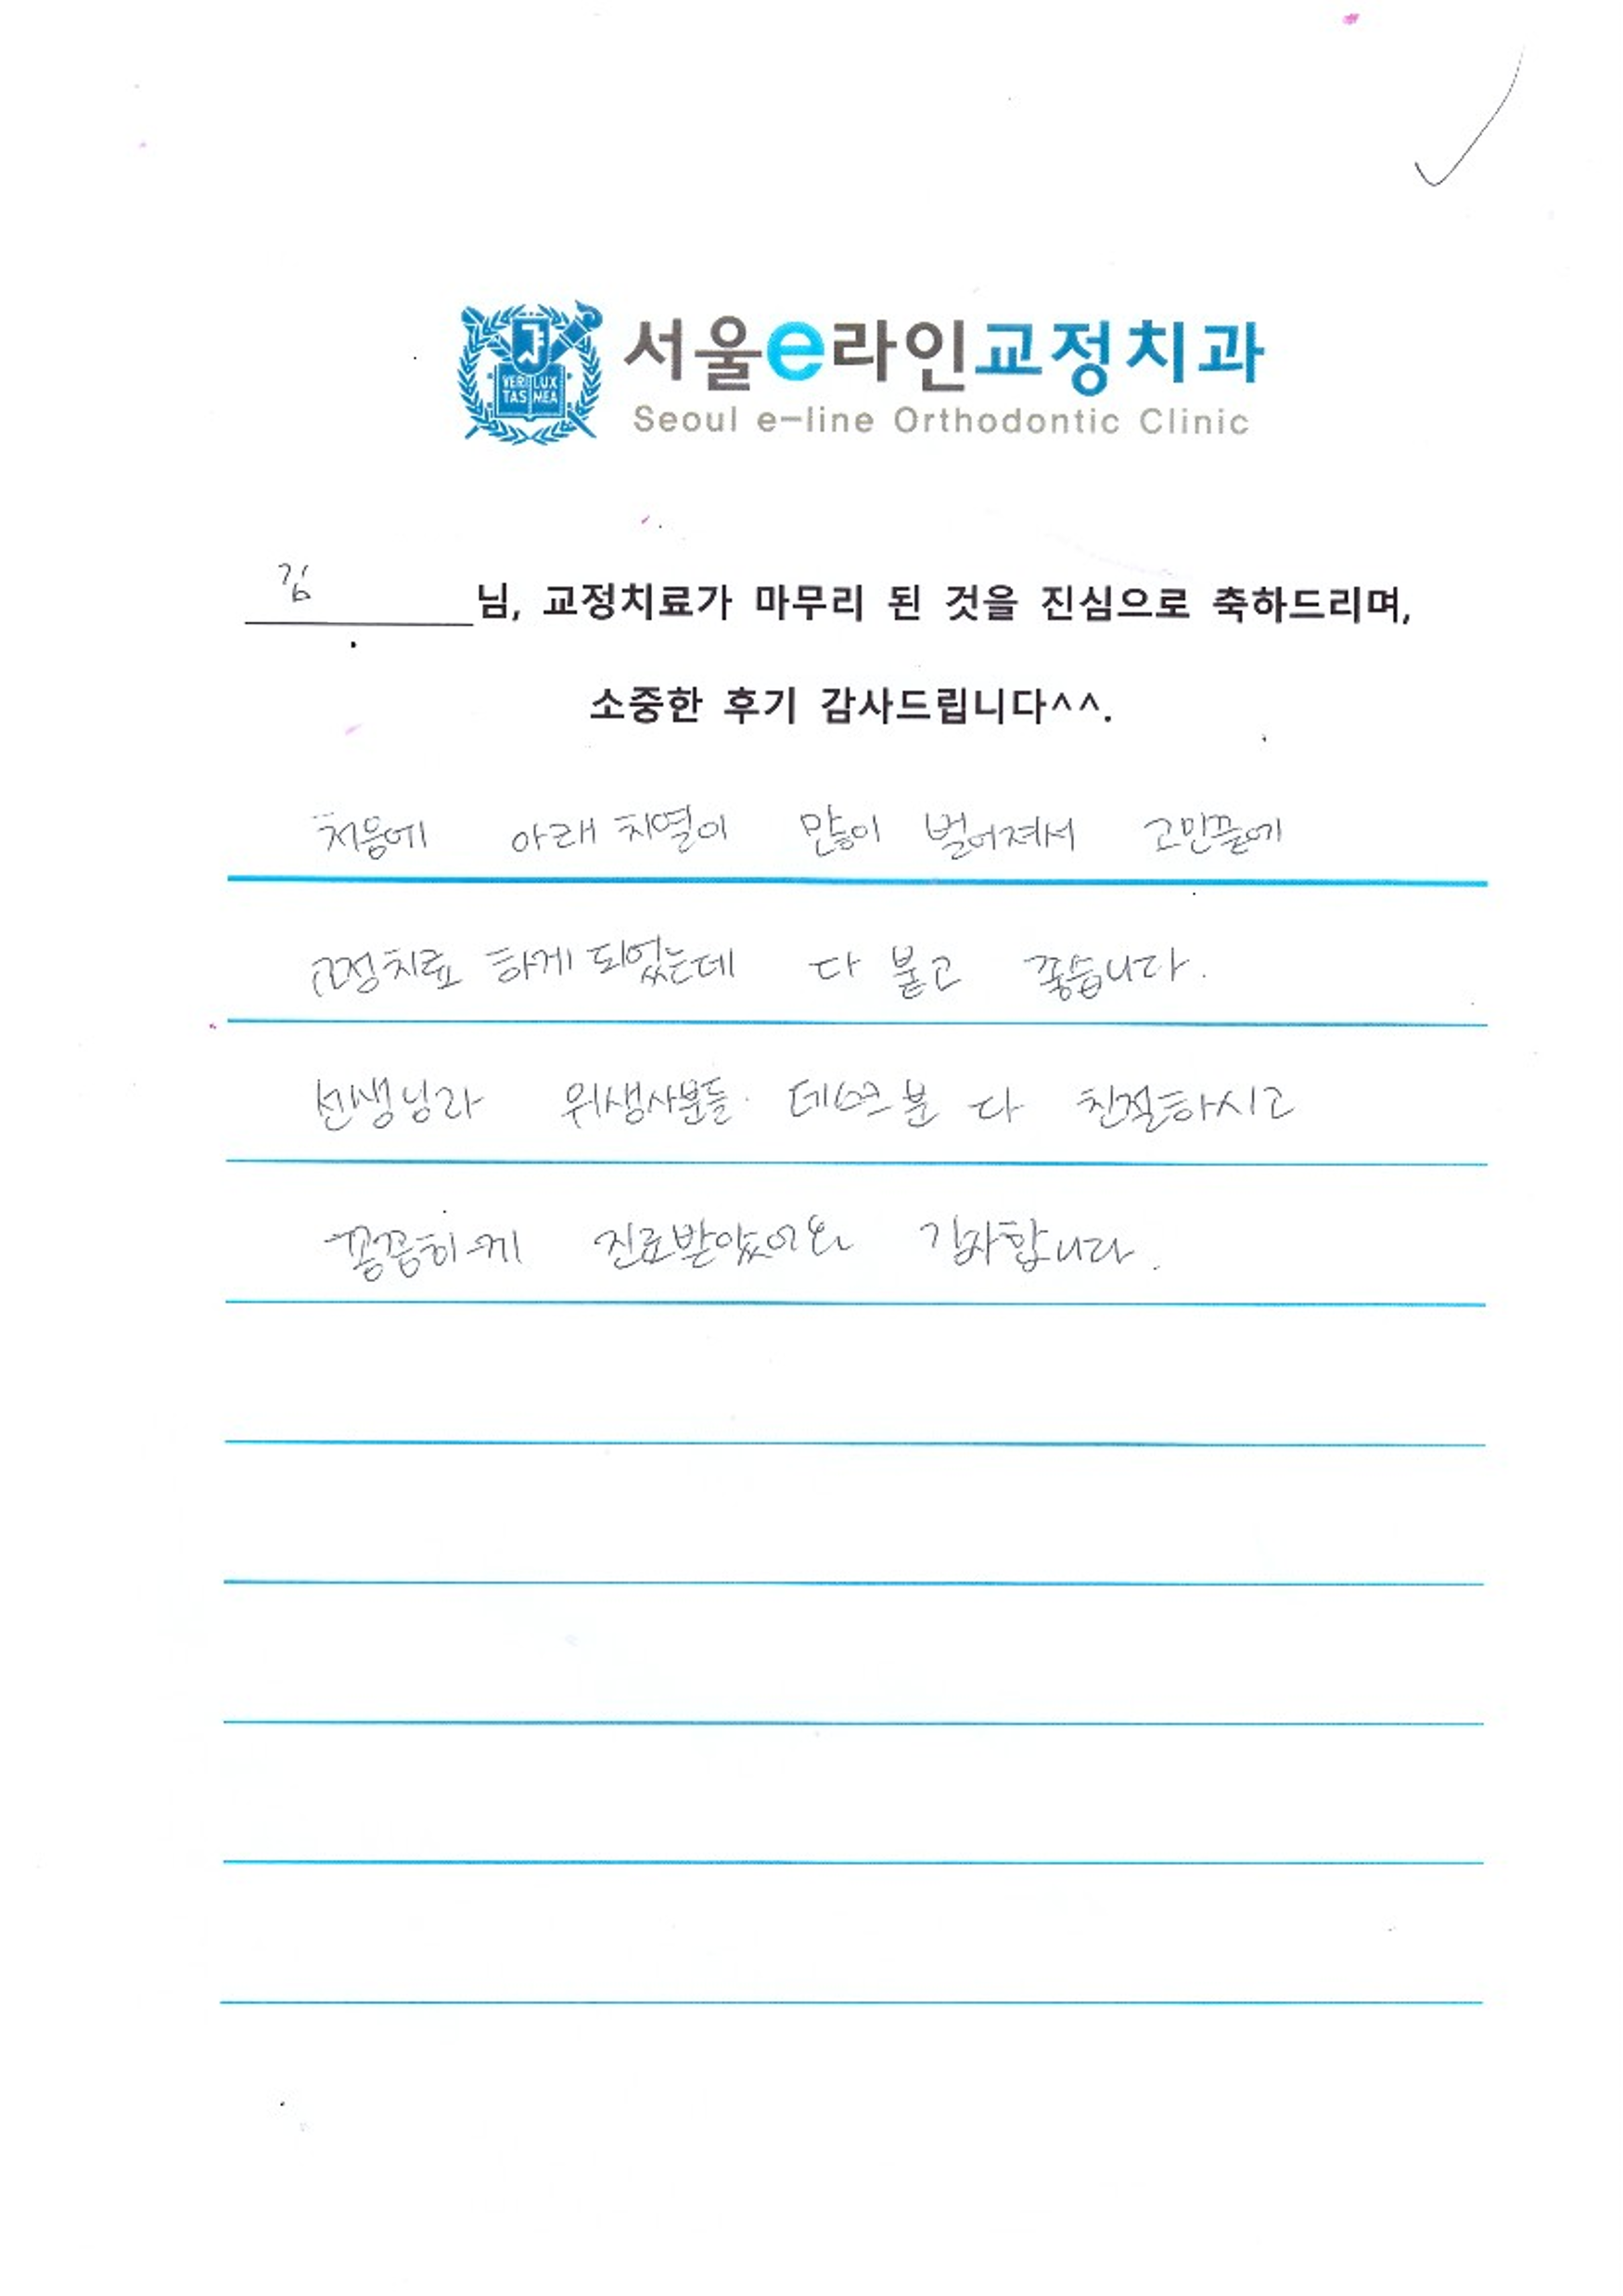 VERI LUX
TAS MEA
서울e라인교정치과
Seoul e-line Orthodontic Clinic
김 님, 교정치료가 마무리 된 것을 진심으로 축하드리며,
소중한 후기 감사드립니다^^.
처음에 아래 치열이 많이 벌어져서 고민끝에
교정치료 하게 되었는데 다 붙고 좋습니다.
선생님과 위생사분들 데스크분 다 친절하시고
꼼꼼하게 진료받았어요 감사합니다.